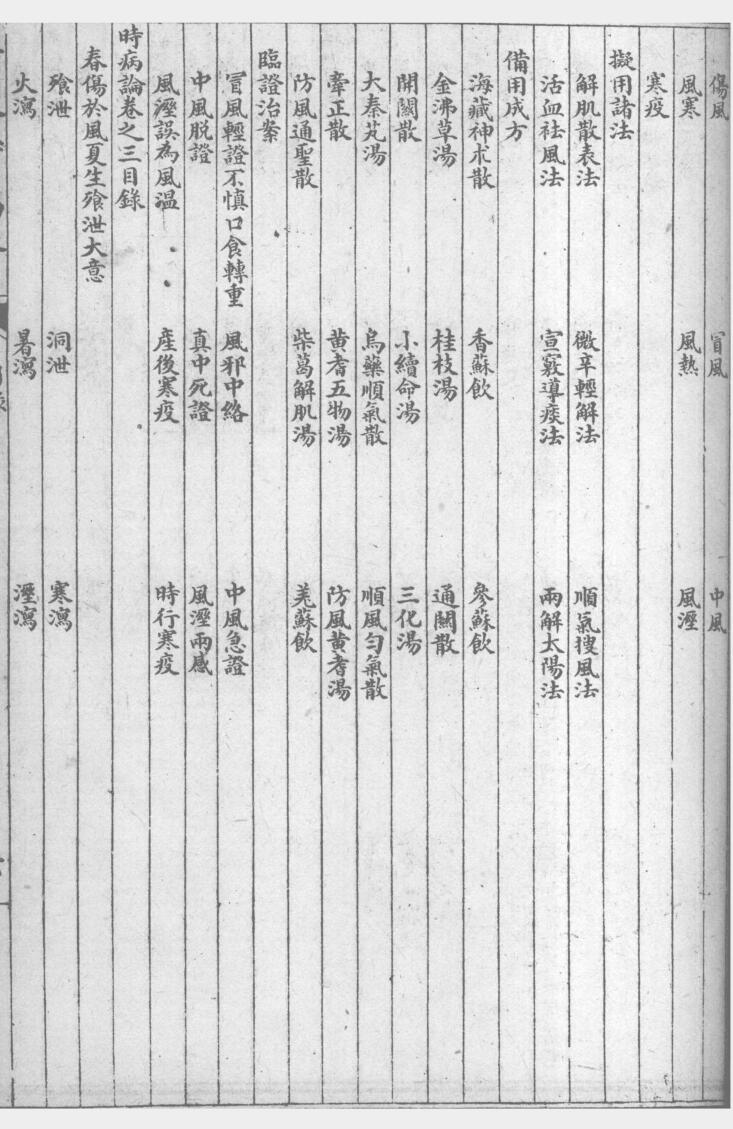 傷風 冒風 中風
風寒 風熱 風溼
寒疫
擬用諸法
解肌散表法 微辛輕解法 順氣搜風法
活血祛風法 宣竅導痰法 兩解太陽法
備用成方
海藏神朮散 香蘇飲 參蘇飲
金沸草湯 桂枝湯 通關散
開關散 小續命湯 三化湯
大秦艽湯 烏藥順氣散 順風勻氣散
牽正散 黃耆五物湯 防風黃耆湯
防風通聖散 柴葛解肌湯 羗蘇飲
臨證治案
冒風輕證不慎口食轉重 風邪中絡 中風急證
中風脫證 真中死證 風溼兩感
風溼誤為風溫 產後寒疫 時行寒疫
時病論卷之三目錄
春傷於風夏生飱泄大意
飱泄 洞泄 寒瀉
火瀉 暑瀉 溼瀉